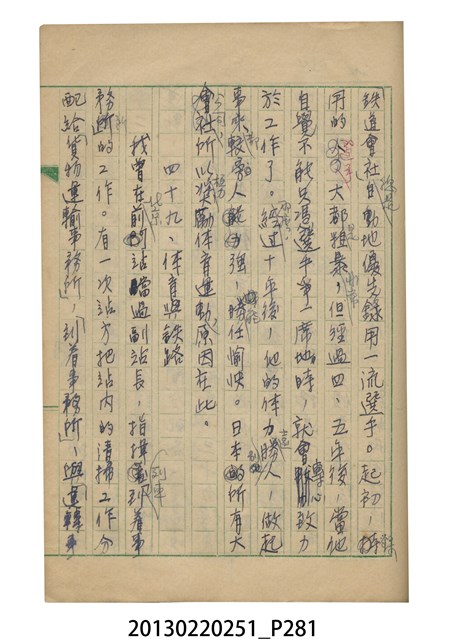 鉄道會社自動地優先錄用一流選手。起初，採
用的選手大都粗暴，但經過四、五年後，當他
自覺不能只憑選手爭一席地時，就會專心致力
於工作了。經過十年後，他的体力勝人，做起
事來較旁人能力強，勝任愉快。日本的所有大
會社所以獎勵体育運動原因在此。
四十九、体育與鉄路
我曾在前站當過副站長，指揮列着事
務所的工作。有一次站方把站內的清掃工作分
配給貨物運輸事務所，到着事務所，與運轉事
20130220251_P281